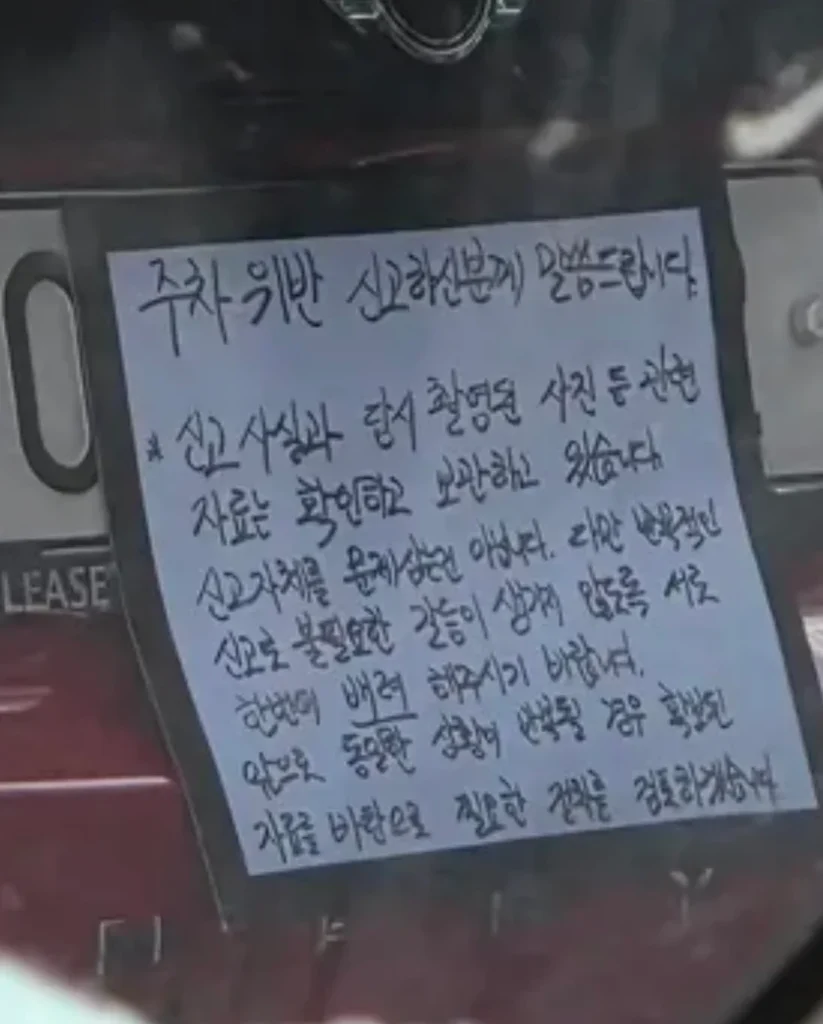 주차 위반 신고하신분께 말씀드립니다.
* 신고 사실과 당시 촬영된 사진 등 관련
자료는 확인하고 보관하고 있습니다.
신고자체를 문제삼는건 아닙니다. 다만 반복적인
신고로 불필요한 갈등이 생기지 않도록 서로
한번더 배려 해주시기 바랍니다.
앞으로 동일한 상황이 반복될 경우 확보된
자료를 바탕으로 필요한 절차를 검토하겠습니다
0
LEASE